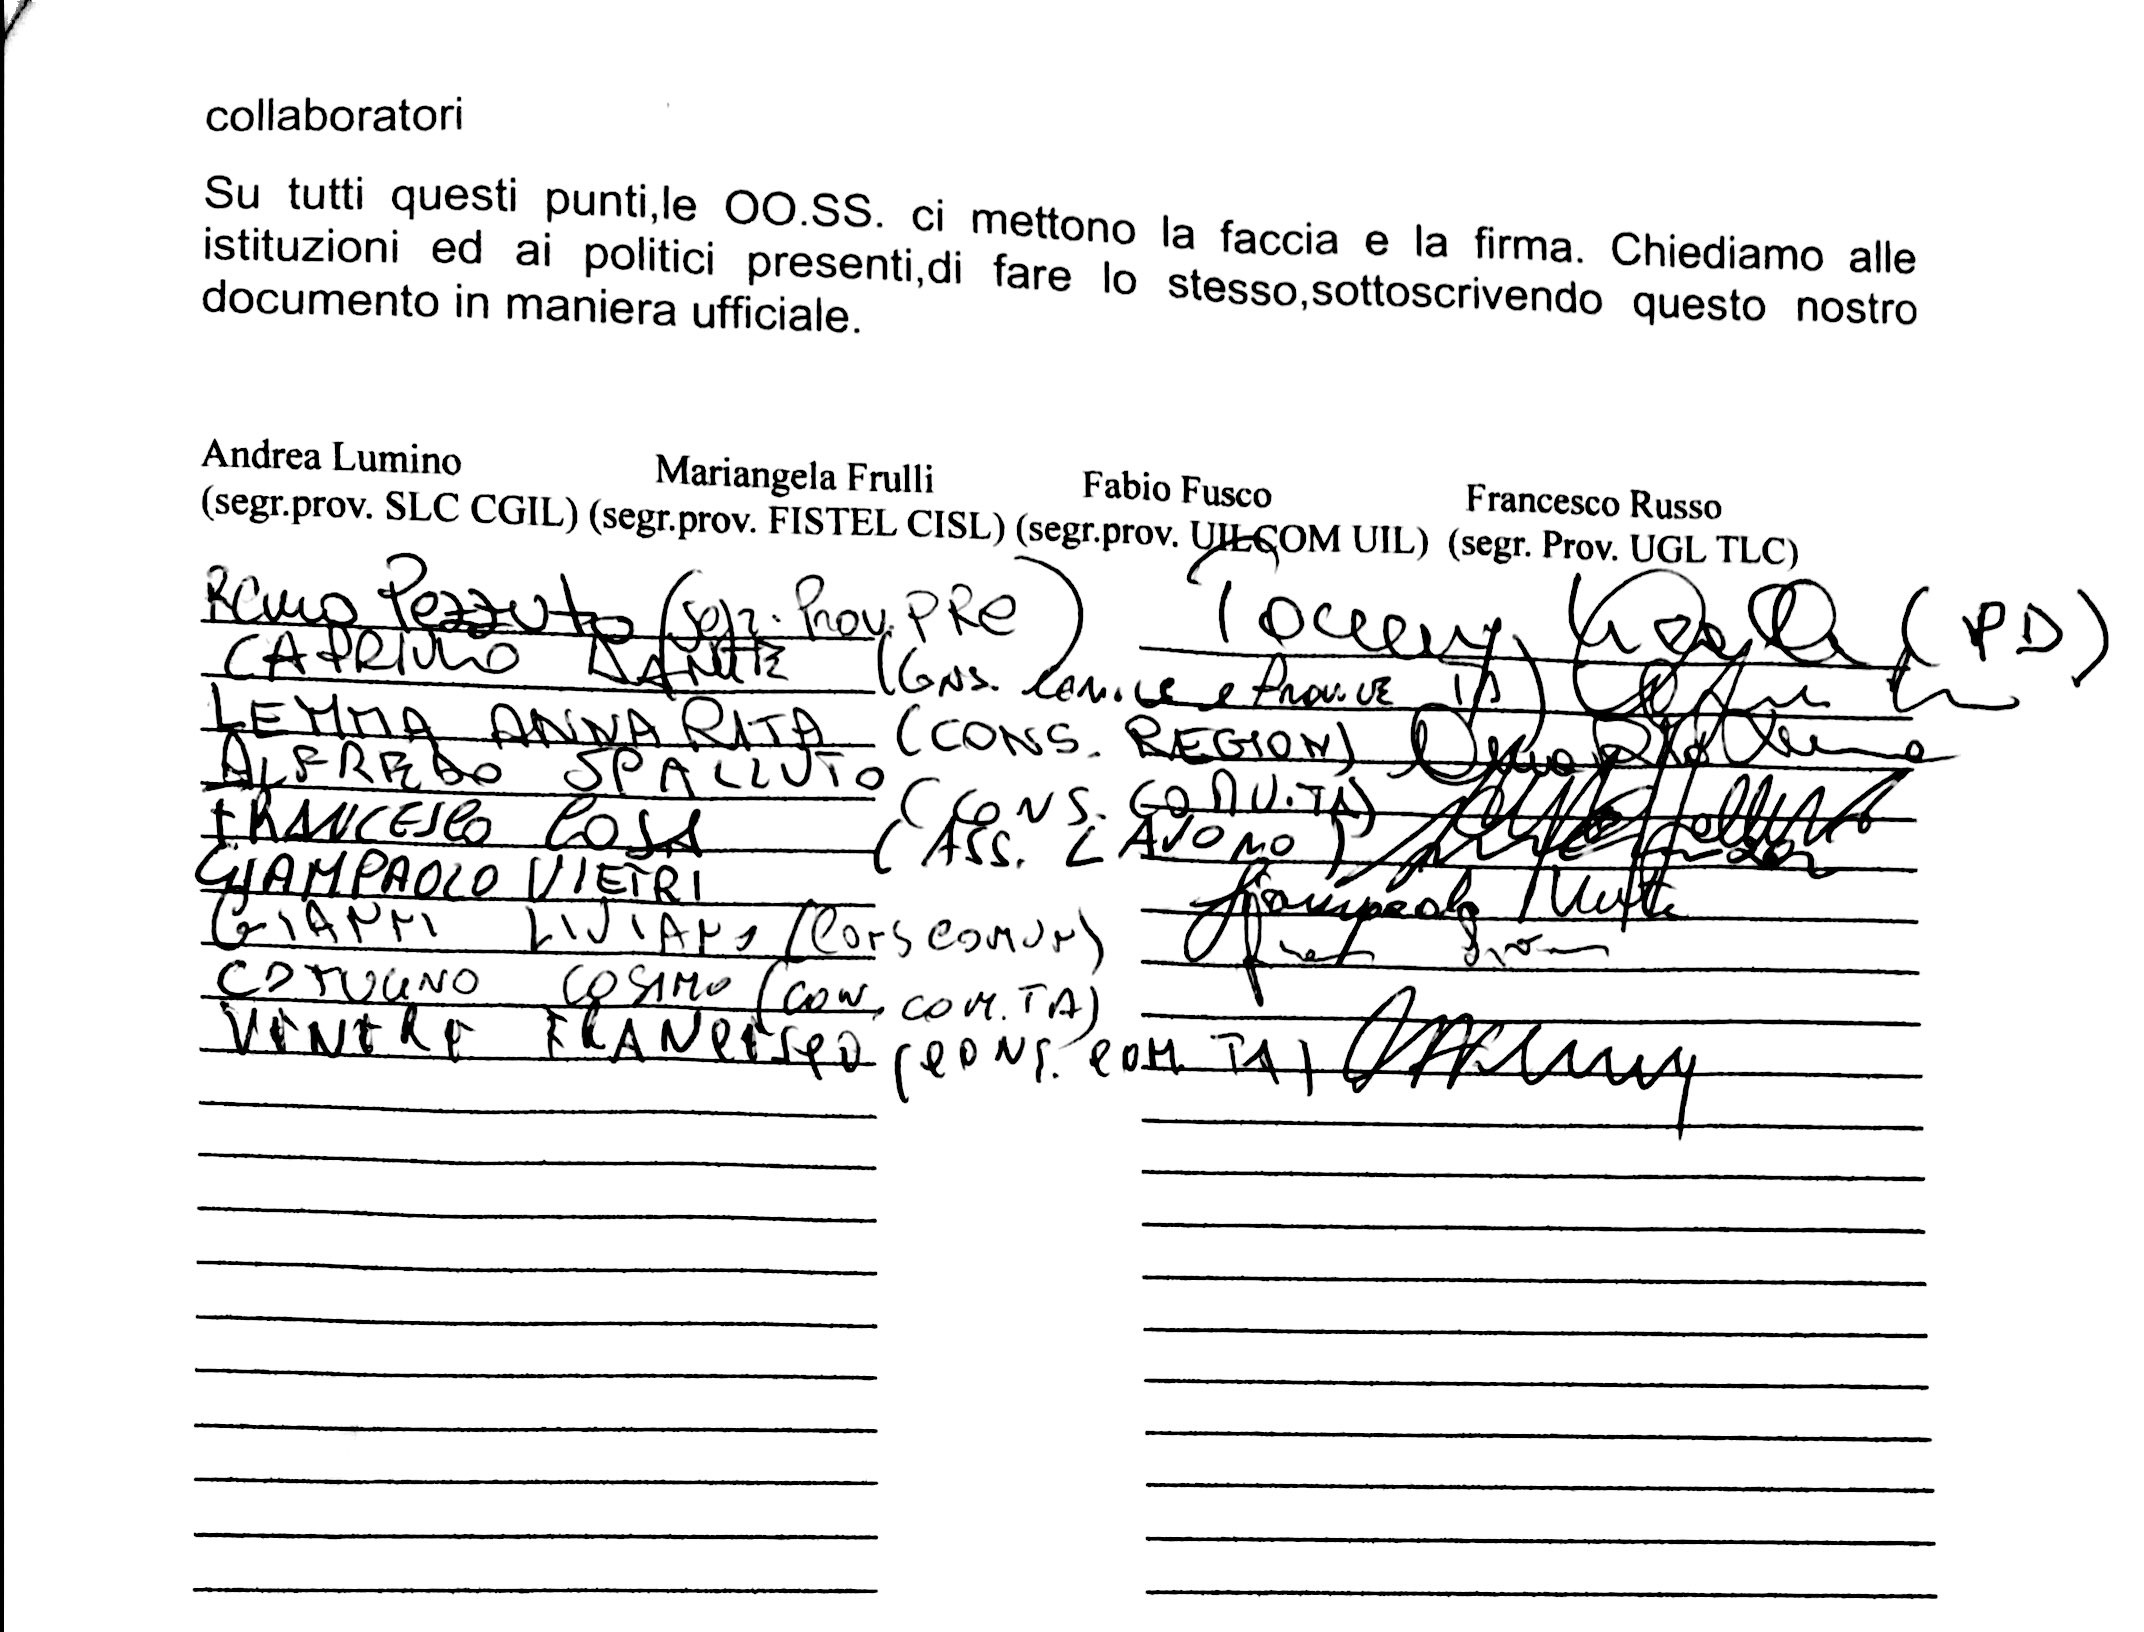 collaboratori
Su tutti questi punti,le OO.SS. ci mettono la faccia e la firma. Chiediamo alle
istituzioni ed ai politici presenti,di fare lo stesso,sottoscrivendo questo nostro
documento in maniera ufficiale.
Andrea Lumino Mariangela Frulli Fabio Fusco Francesco Russo
(segr.prov. SLC CGIL) (segr.prov. FISTEL CISL) (segr.prov. UILCOM UIL) (segr. Prov. UGL TLC)
Remo Pezzuto (segr. Prov. PRE) (PD)
CAPRIULO DANTE
LEMMA ANNA RITA (CONS. REGION)
ALFREDO SPALLUTO (CONS. COMU. TA)
FRANCESCO COSA (ASS. LAVORO)
GIAMPAOLO VIETRI Giampaolo Vietri
GIANNI LIVIANO (CONS COMUN)
COTUGNO COSIMO (CON. COM. TA)
VENERE FRANCESCO (CONS. COM. TA)